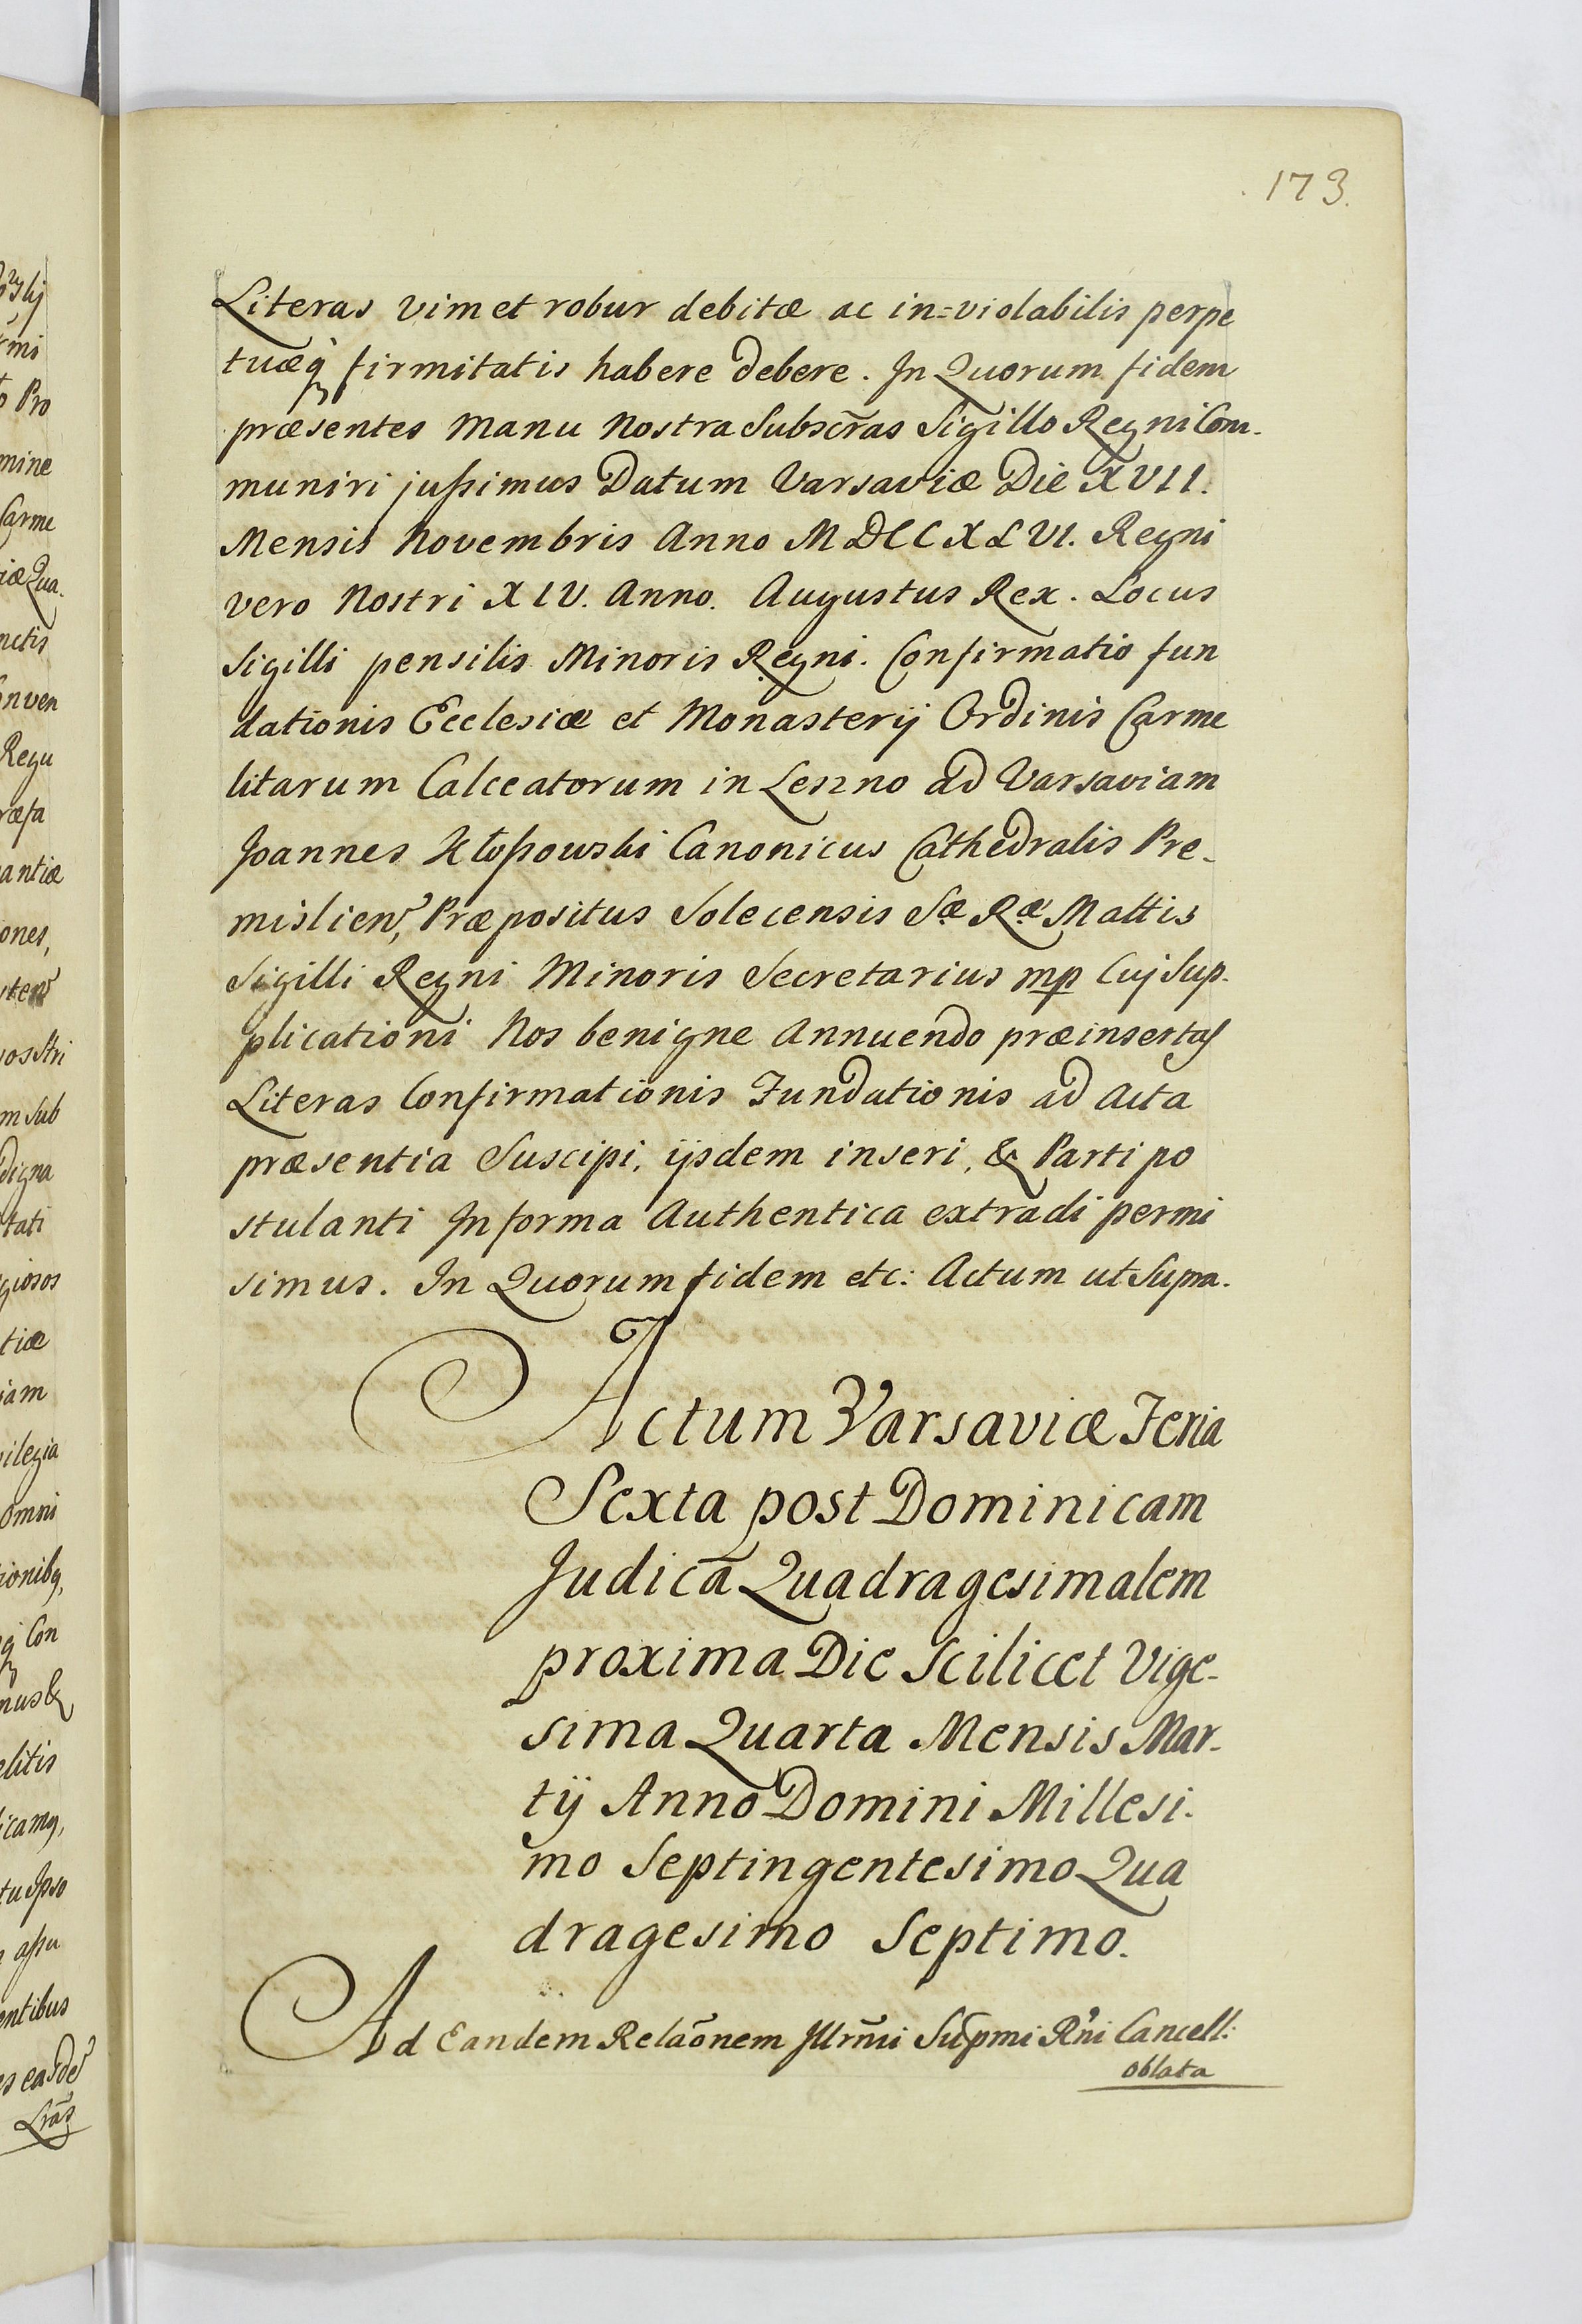 173.
Literas vim et robur debitæ ac in=violabilis perpe
tuæq́ firmitatis habere debere. In Quorum fidem
præsentes Manu Nostra Subscr̃as Sigillo Regni Com-
muniri jußimus Datum Varsaviæ Die XVII.
Mensis Novembris Anno MDCCXLVI. Regni
vero Nostri XIV. Anno. Augustus Rex. Locus
Sigilli pensilis Minoris Regni. Confirmatio fun
dationis Ecclesiæ et Monasterij Ordinis Carme
litarum Calceatorum in Leszno ad Varsaviam
Joannes Kłoßowski Canonicus Cathedralis Pre-
mislien, Præpositus Solecensis Sæ Ræ Mattis
Sigilli Regni Minoris Secretarius mp Cuj Sup-
plicationi Nos benigne Annuendo præinsertas
Literas Confirmationis Fundationis ad Acta
præsentia Suscipi, ijsdem inseri, & Parti po
stulanti In forma Authentica extradi permi
simus. In Quorum fidem etc: Actum ut Supra.
Actum Varsaviæ Feria
Sexta post Dominicam
Judica Quadragesimalem
proxima Die Scilicet Vige-
sima Quarta Mensis Mar-
tij Anno Domini Millesi-
mo Septingentesimo Qua
dragesimo Septimo.
Ad Eandem Relaõnem Illrm̃i Supmi Rñi Cancell:
oblata